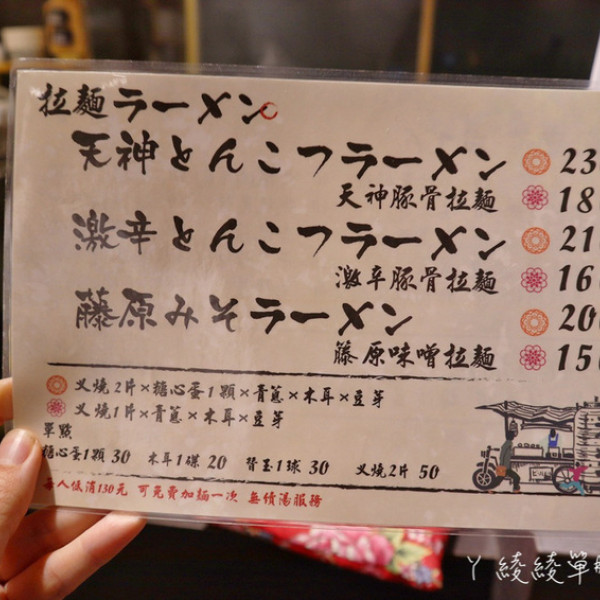 拉麵ラーメン
天神とんこつラーメン 23
天神豚骨拉麵 18
激辛とんこつラーメン 21
激辛豚骨拉麵 160
藤原みそラーメン 200
藤原味噌拉麵 150
叉燒2片×糖心蛋1顆×青蔥×木耳×豆芽
叉燒1片×青蔥×木耳×豆芽
單點
糖心蛋1顆 30 木耳1碟 20 替玉1球 30 叉燒2片 50
每人低消130元 可免費加麵一次 無續湯服務
ㄚ綾綾單